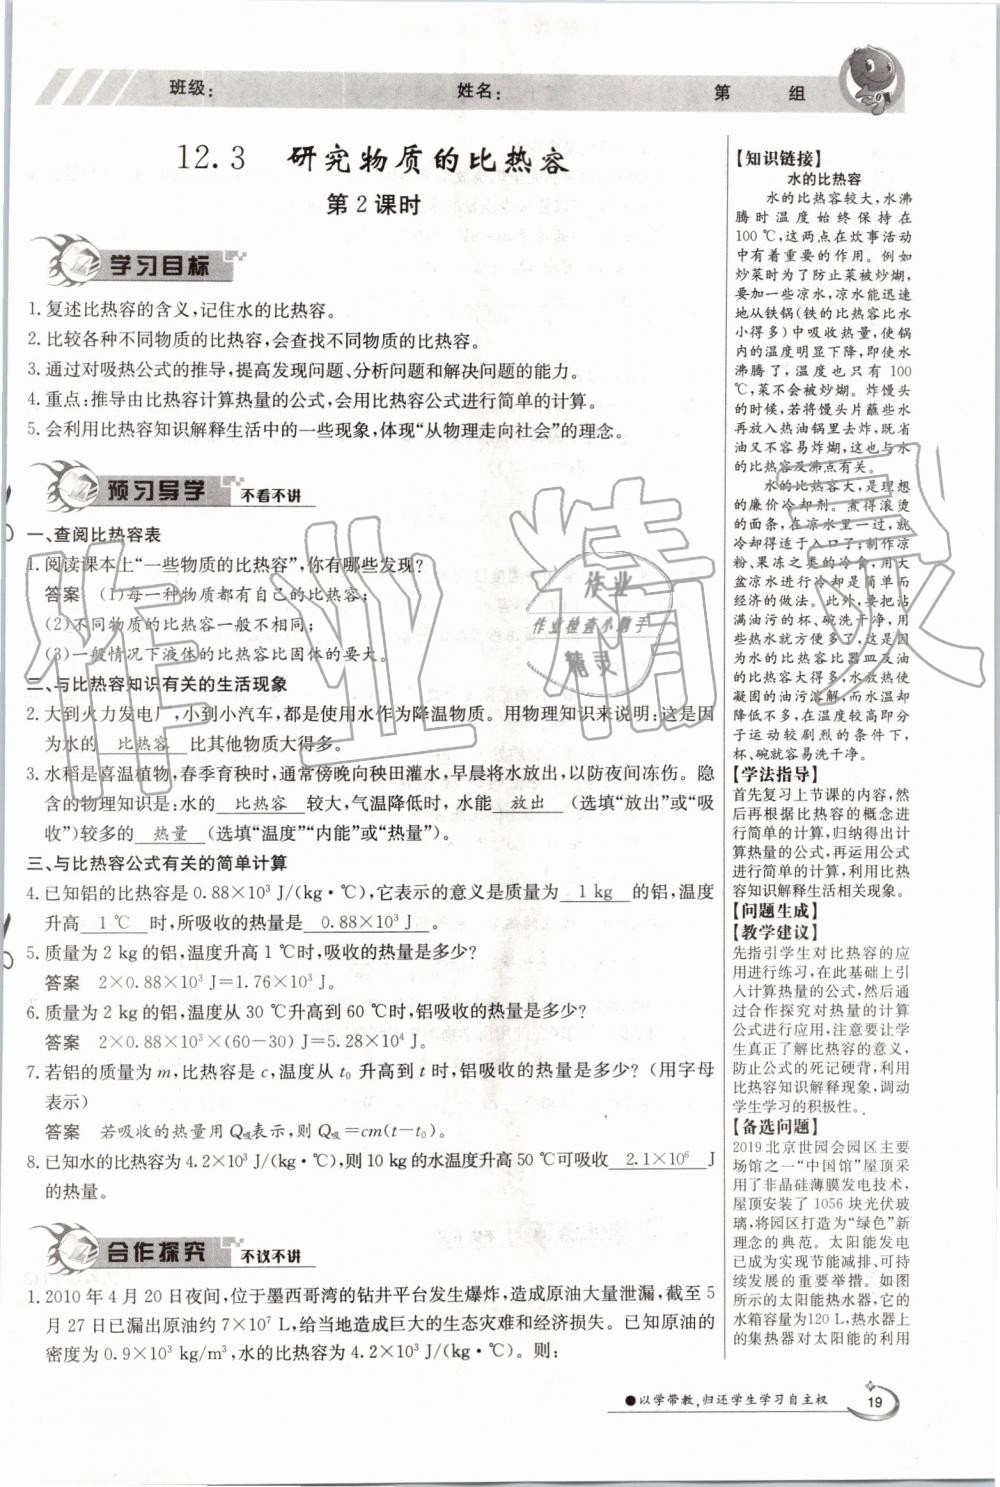 班级：
姓名：
第 组
12.3 研究物质的比热容
第2课时
学习目标
1.复述比热容的含义,记住水的比热容。
2.比较各种不同物质的比热容,会查找不同物质的比热容。
3.通过对吸热公式的推导,提高发现问题、分析问题和解决问题的能力。
4.重点:推导由比热容计算热量的公式,会用比热容公式进行简单的计算。
5.会利用比热容知识解释生活中的一些现象,体现“从物理走向社会”的理念。
预习导学 不看不讲
一、查阅比热容表
1.阅读课本上“一些物质的比热容”,你有哪些发现?
答案 (1)每一种物质都有自己的比热容;
(2)不同物质的比热容一般不相同;
(3)一般情况下液体的比热容比固体的要大。
二、与比热容知识有关的生活现象
2.大到火力发电厂,小到小汽车,都是使用水作为降温物质。用物理知识来说明:这是因
为水的 比热容 比其他物质大得多。
3.水稻是喜温植物,春季育秧时,通常傍晚向秧田灌水,早晨将水放出,以防夜间冻伤。隐
含的物理知识是:水的 比热容 较大,气温降低时,水能 放出 (选填“放出”或“吸
收”)较多的 热量 (选填“温度”“内能”或“热量”)。
三、与比热容公式有关的简单计算
4.已知铝的比热容是0.88×10³ J/(kg·℃),它表示的意义是质量为 1 kg 的铝,温度
升高 1 ℃ 时,所吸收的热量是 0.88×10³ J 。
5.质量为2 kg的铝,温度升高1 ℃时,吸收的热量是多少?
答案 2×0.88×10³ J=1.76×10³ J。
6.质量为2 kg的铝,温度从30 ℃升高到60 ℃时,铝吸收的热量是多少?
答案 2×0.88×10³×(60-30) J=5.28×10⁴ J。
7.若铝的质量为m,比热容是c,温度从t₀升高到t时,铝吸收的热量是多少?(用字母
表示)
答案 若吸收的热量用Q吸表示,则Q吸=cm(t-t₀)。
8.已知水的比热容为4.2×10³ J/(kg·℃),则10 kg的水温度升高50 ℃可吸收 2.1×10⁶ J
的热量。
合作探究 不议不讲
1.2010年4月20日夜间,位于墨西哥湾的钻井平台发生爆炸,造成原油大量泄漏,截至5
月27日已漏出原油约7×10⁷ L,给当地造成巨大的生态灾难和经济损失。已知原油的
密度为0.9×10³ kg/m³,水的比热容为4.2×10³ J/(kg·℃)。则:
【知识链接】
水的比热容
水的比热容较大,水沸
腾时温度始终保持在
100 ℃,这两点在炊事活动
中有着重要的作用。例如
炒菜时为了防止菜被炒煳,
要加一些凉水,凉水能迅速
地从铁锅(铁的比热容比水
小得多)中吸收热量,使锅
内的温度明显下降,即使水
沸腾了,温度也只有100
℃,菜不会被炒煳。炸馒头
的时候,若将馒头片蘸些水
再放入热油锅里去炸,既省
油又不容易炸煳,这也与水
的比热容及沸点有关。
水的比热容大,是理想
的廉价冷却剂。煮得滚烫
的面条,在凉水里一过,就
冷却得适于入口了;制作凉
粉、果冻之类的冷食,用大
盆凉水进行冷却是简单而
经济的做法。此外,要把沾
满油污的杯、碗洗干净,用
些热水就方便多了,这是因
为水的比热容比器皿及油
的比热容大得多,水放热使
凝固的油污溶解,而水温却
降低不多,在温度较高即分
子运动较剧烈的条件下,
杯、碗就容易洗干净。
【学法指导】
首先复习上节课的内容,然
后再根据比热容的概念进
行简单的计算,归纳得出计
算热量的公式,再运用公式
进行简单的计算,利用比热
容知识解释生活相关现象。
【问题生成】
【教学建议】
先指引学生对比热容的应
用进行练习,在此基础上引
入计算热量的公式,然后通
过合作探究对热量的计算
公式进行应用,注意要让学
生真正了解比热容的意义,
防止公式的死记硬背,利用
比热容知识解释现象,调动
学生学习的积极性。
【备选问题】
2019北京世园会园区主要
场馆之一“中国馆”屋顶采
用了非晶硅薄膜发电技术,
屋顶安装了1056块光伏玻
璃,将园区打造为“绿色”新
理念的典范。太阳能发电
已成为实现节能减排、可持
续发展的重要举措。如图
所示的太阳能热水器,它的
水箱容量为120 L,热水器上
的集热器对太阳能的利用
●以学带教,归还学生学习自主权
19
作业精灵
作业
作业检查小助手
精灵